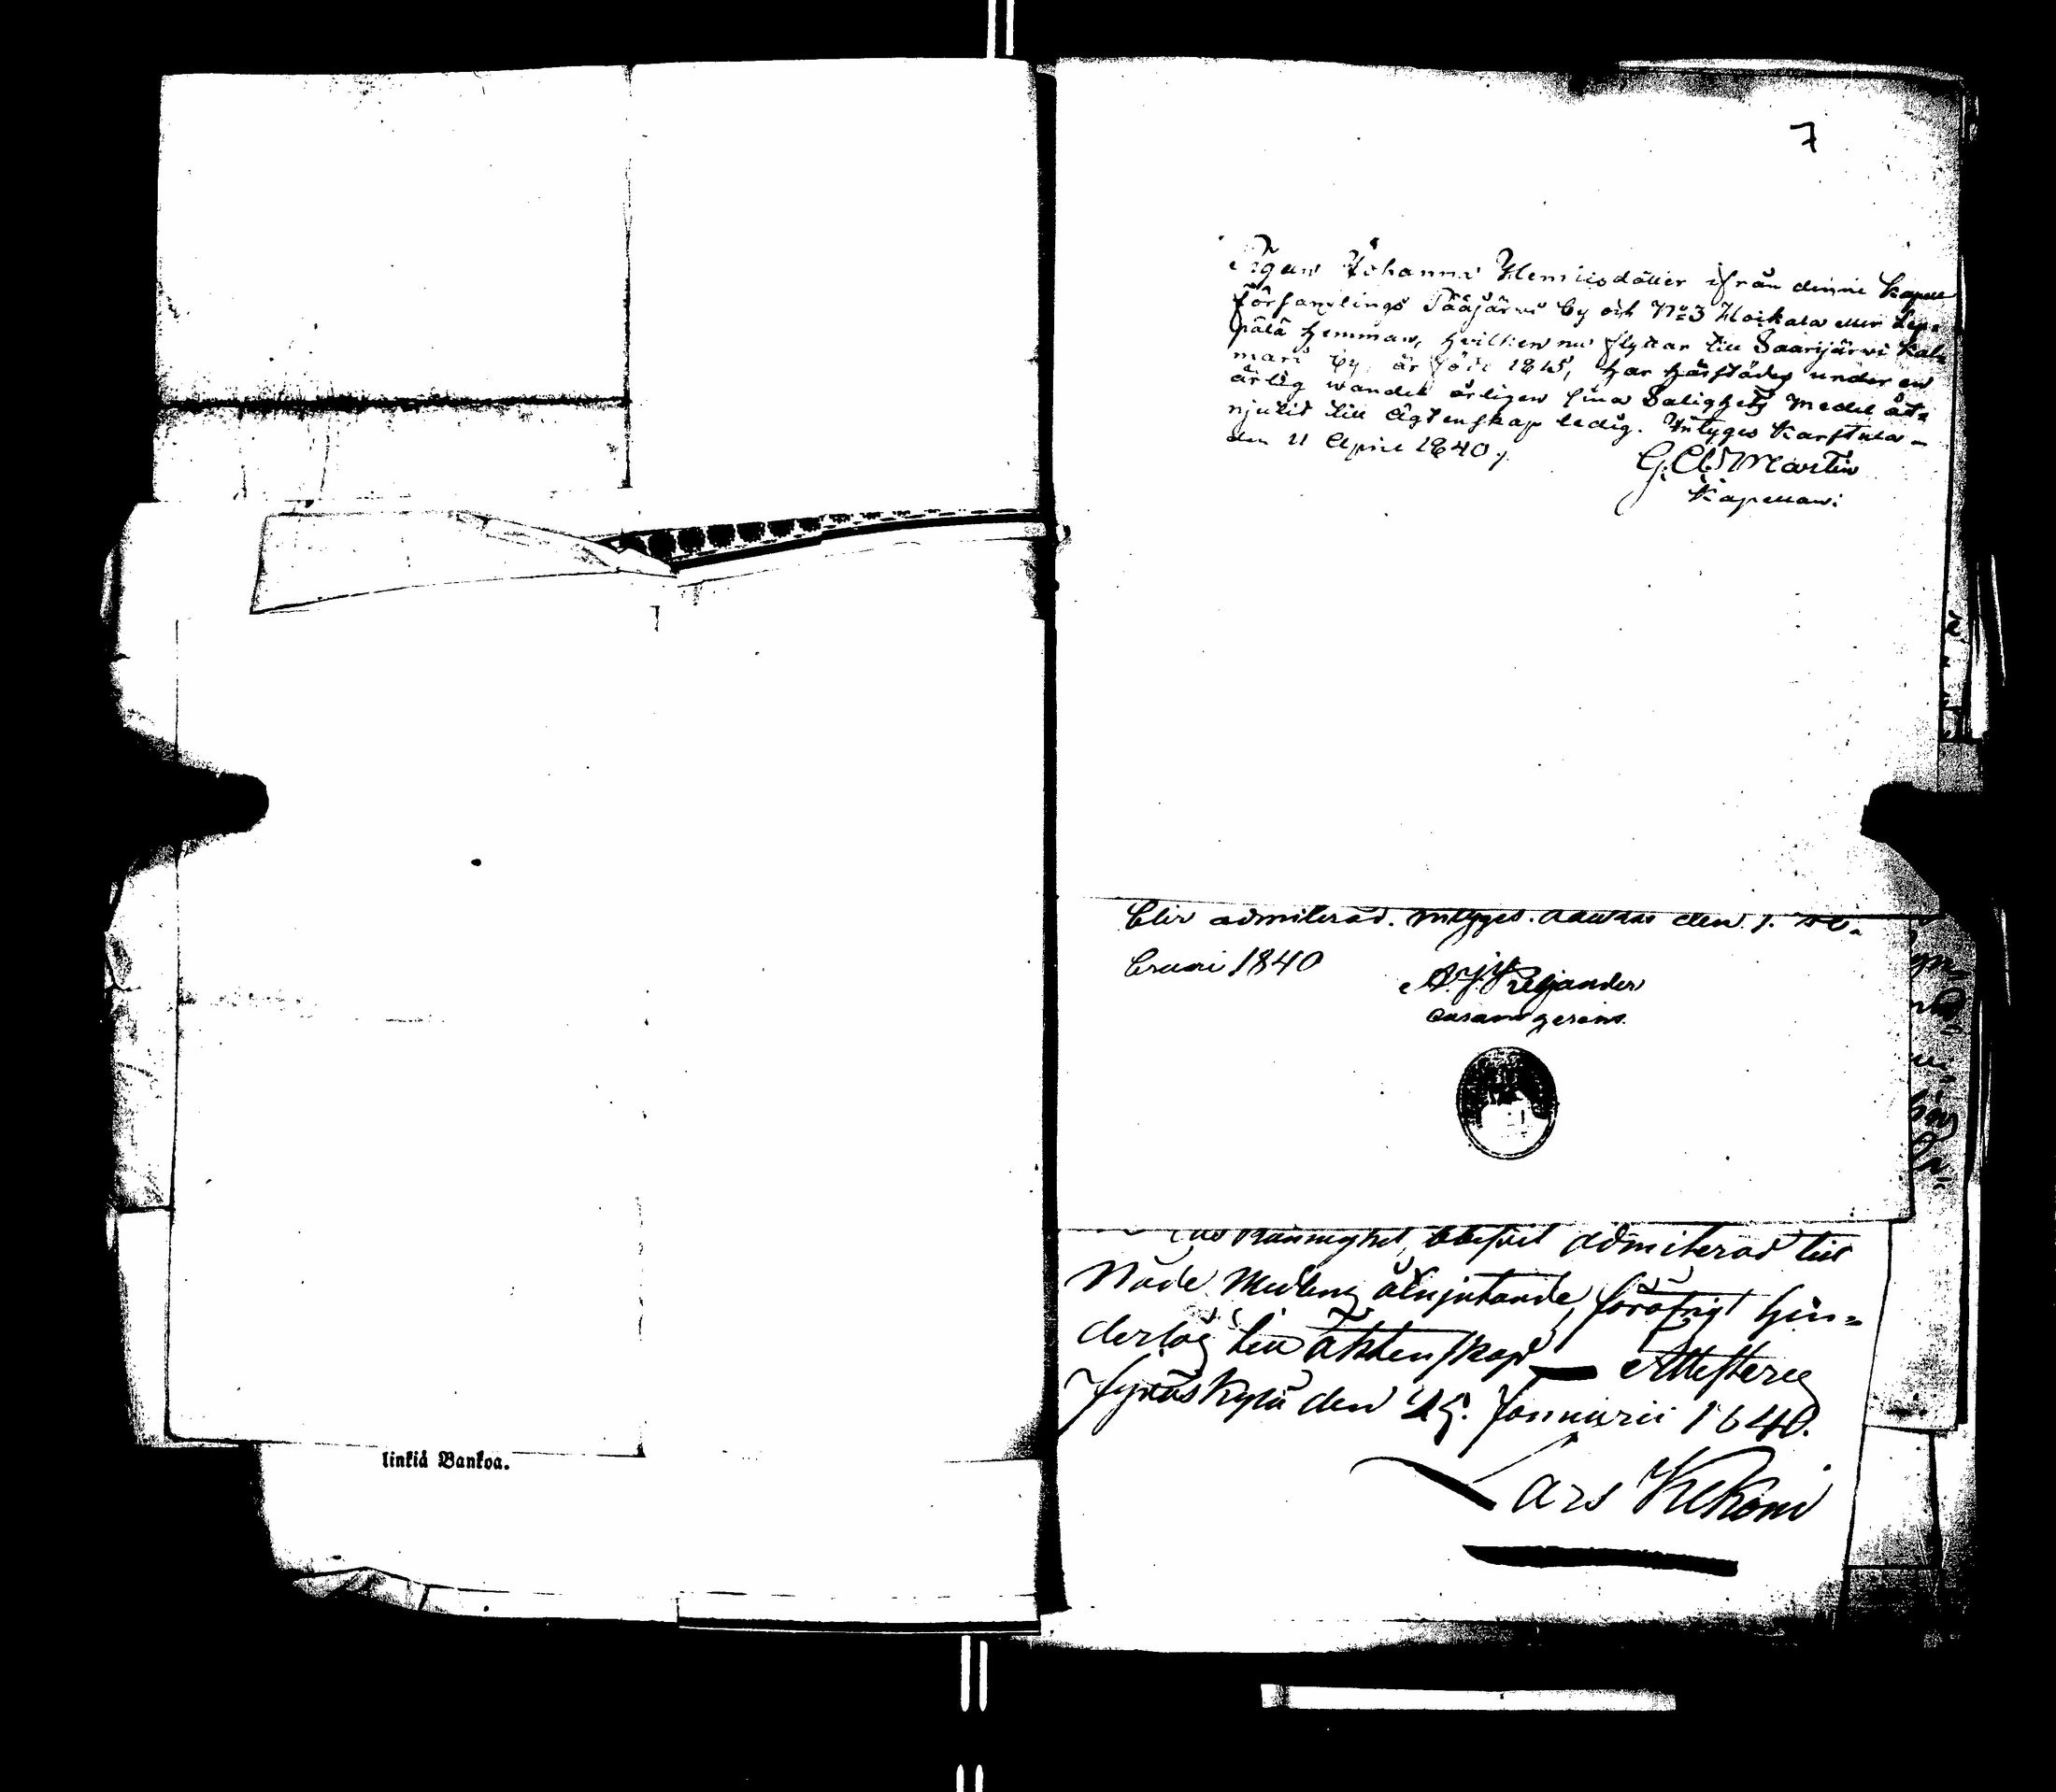 7
Pigan Johanna Henricsdotter ifrån denne Kapell
församlings Pääjärvi by och No 3 Hoikala eller Lep=
pälä Hemman, hvilken nu flyttar till Saarijärvi Kal=
mari by, är född 1815, har härstädes under en
ärlig wandel årligen sina Salighets Medel åt=
njutit till Ägtenskap ledig. Intygas Karstula
den 11 April 1840.
G. Ab. Martin
Kapellan:
blir admitterad. Intyges den 1. Fe=
bruari 1840
A. J.
linkiä Bankoa.
blifvit admitterad till
Nåde Medlens åtnjutande, föröfrigt hin=
derlös till äktenskap — Attesteres
Jyväskylä den 25. Januarii 1840.
Lars Kekoni